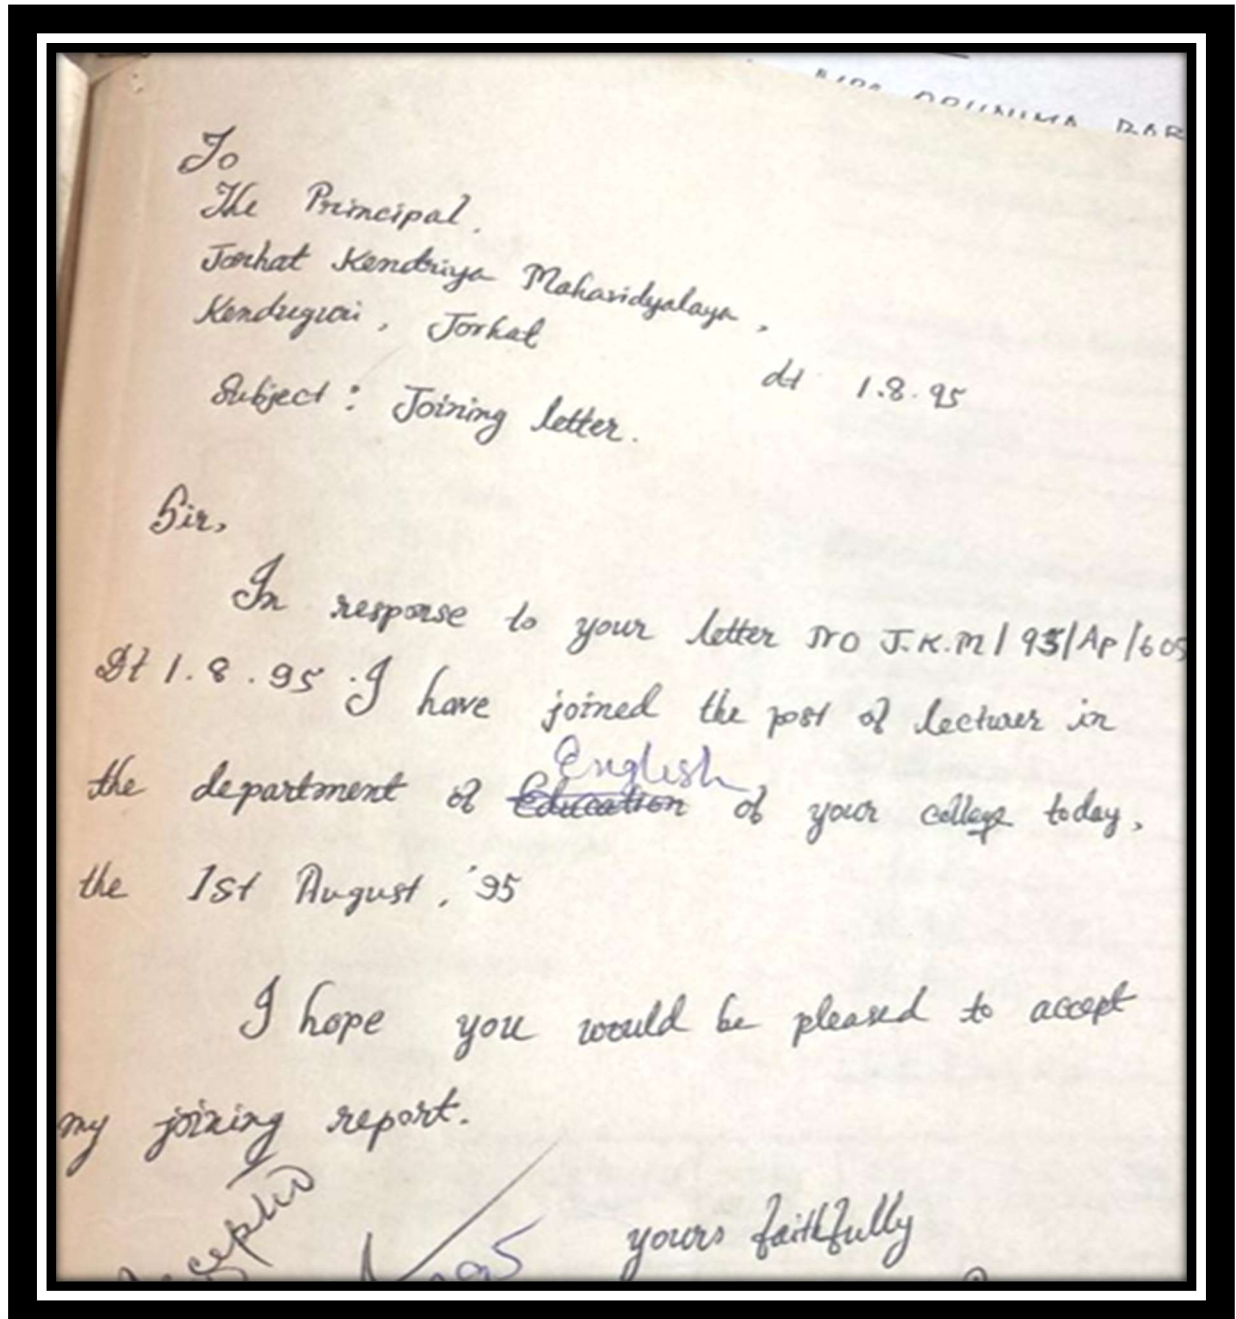 ARUNIMA BAR
To
The Principal.
Jorhat Kendriya Mahavidyalaya,
Kenduguri, Jorhat
dt 1.8.95
Subject: Joining letter.
Sir,
In response to your letter NO J.K.M/95/Ap/605
Dt 1.8.95. I have joined the post of lecturer in
English
the department of Education of your college today,
the 1st August, '95
I hope you would be pleased to accept
my joining report.
Accepted
yours faithfully